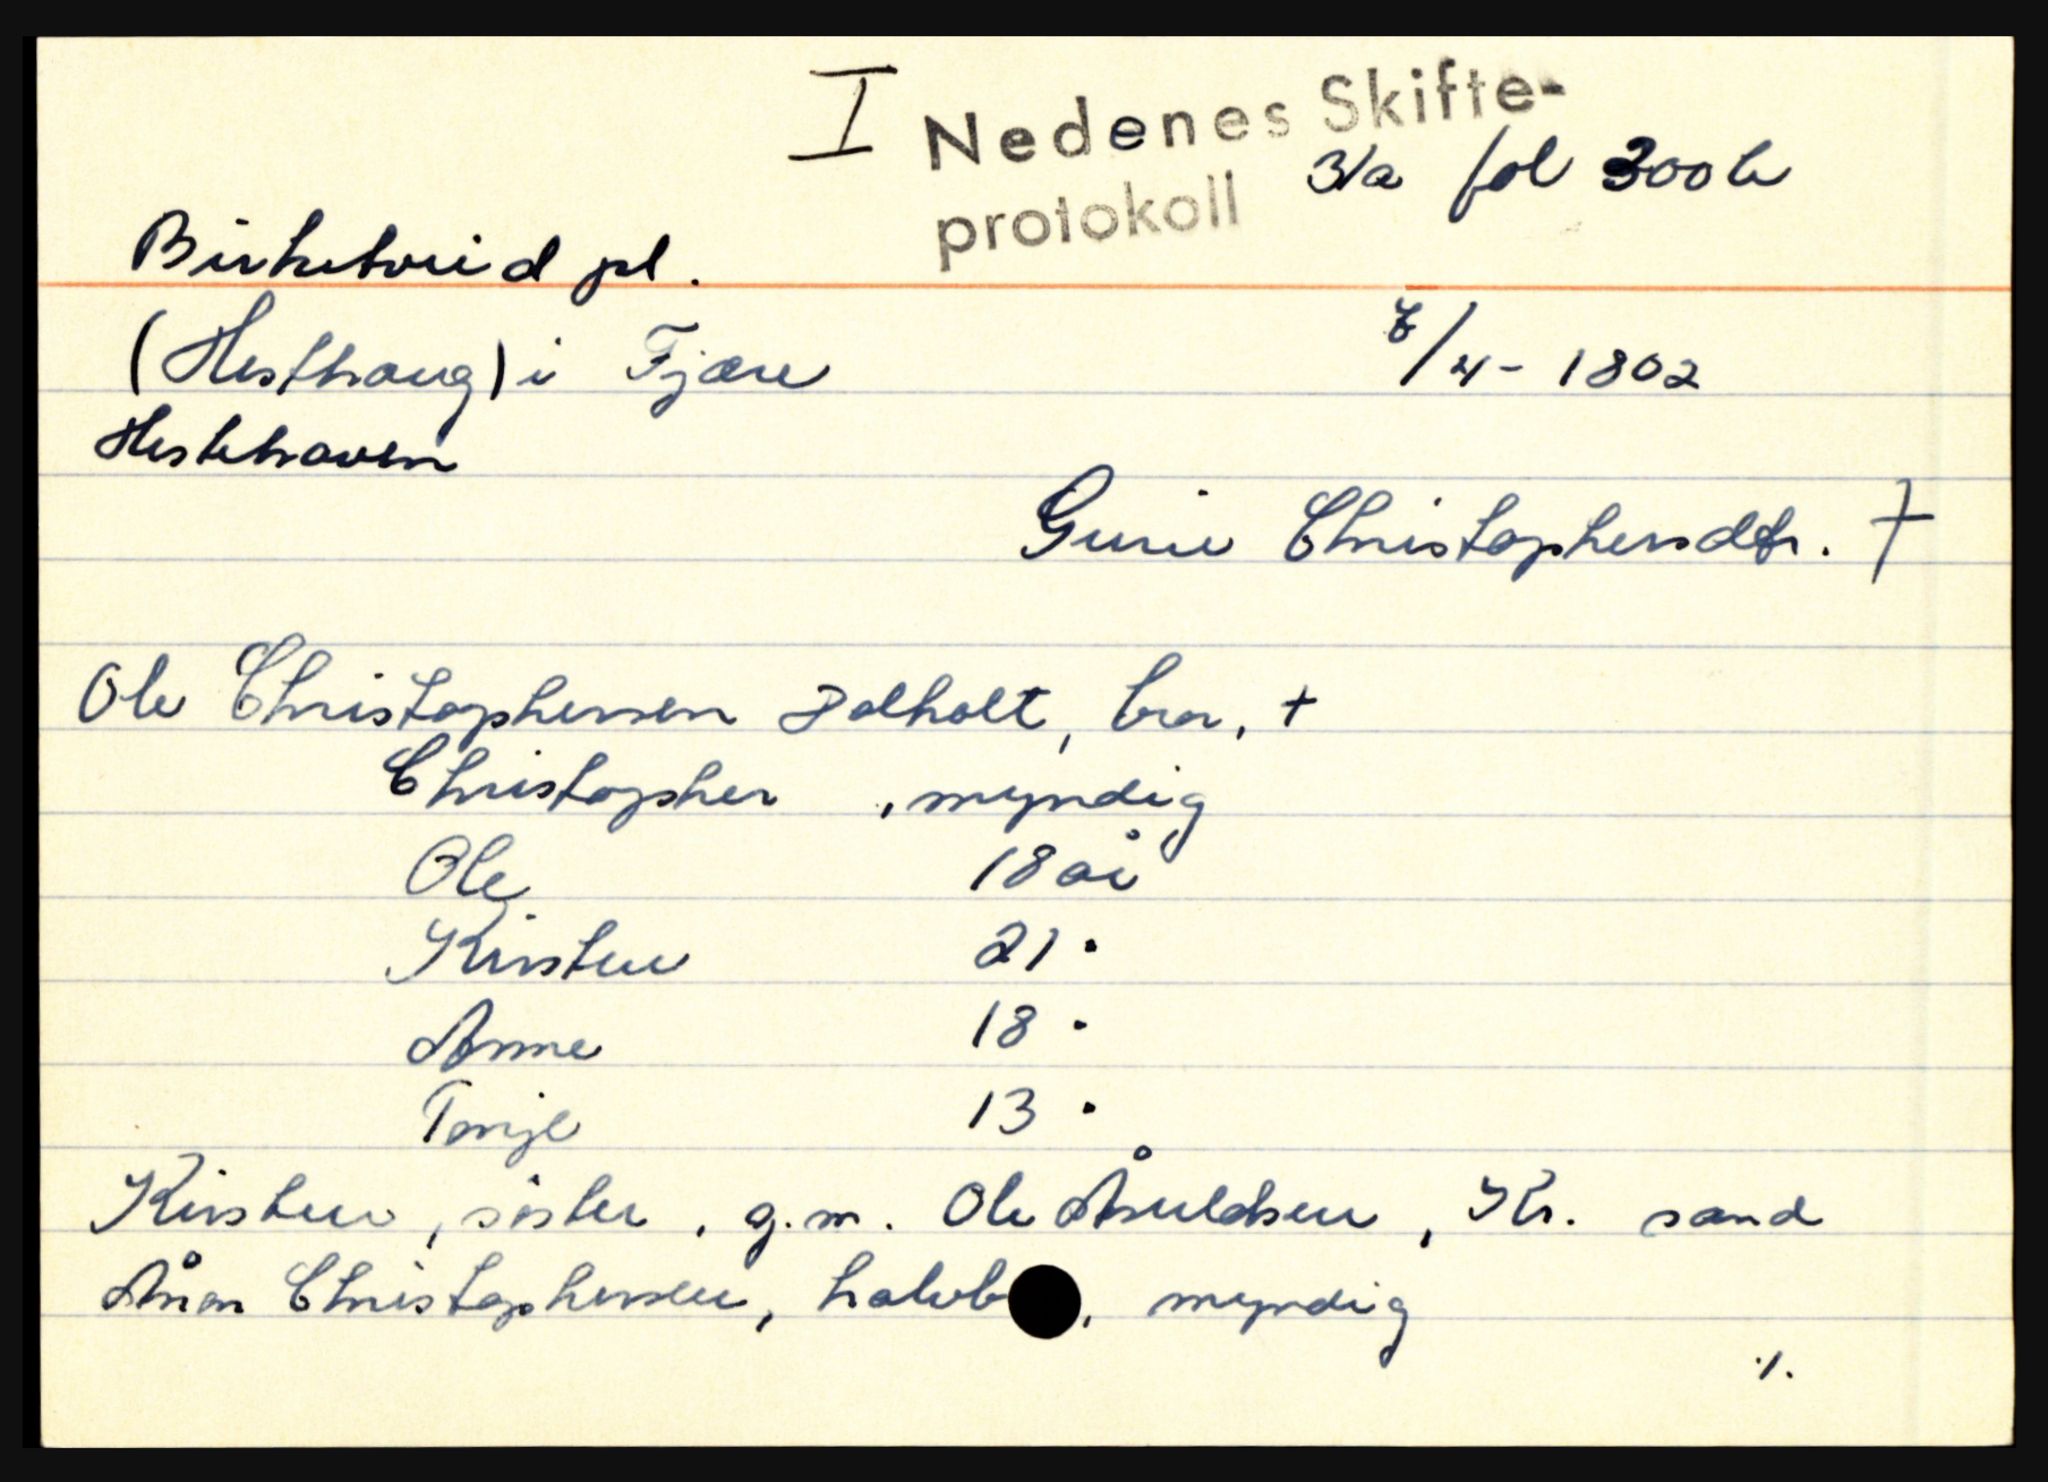 I Nedenes Skifte-
protokoll 3/a fol 300 b
Birketveid pl.
(Hesthaug) i Fjære
/4 - 1802
Hestehaven
Gurie Christophersdtr. †
Ole Christophersen Dalholt, bror, +
Christopher, myndig
Ole 18 år
Kirsten 21 "
Anne 18 "
Tonje 13 "
Kirsten, søster, g.m. Ole Ånuldsen, Kr. sand
Ånon Christophersen, halvb, myndig
./.